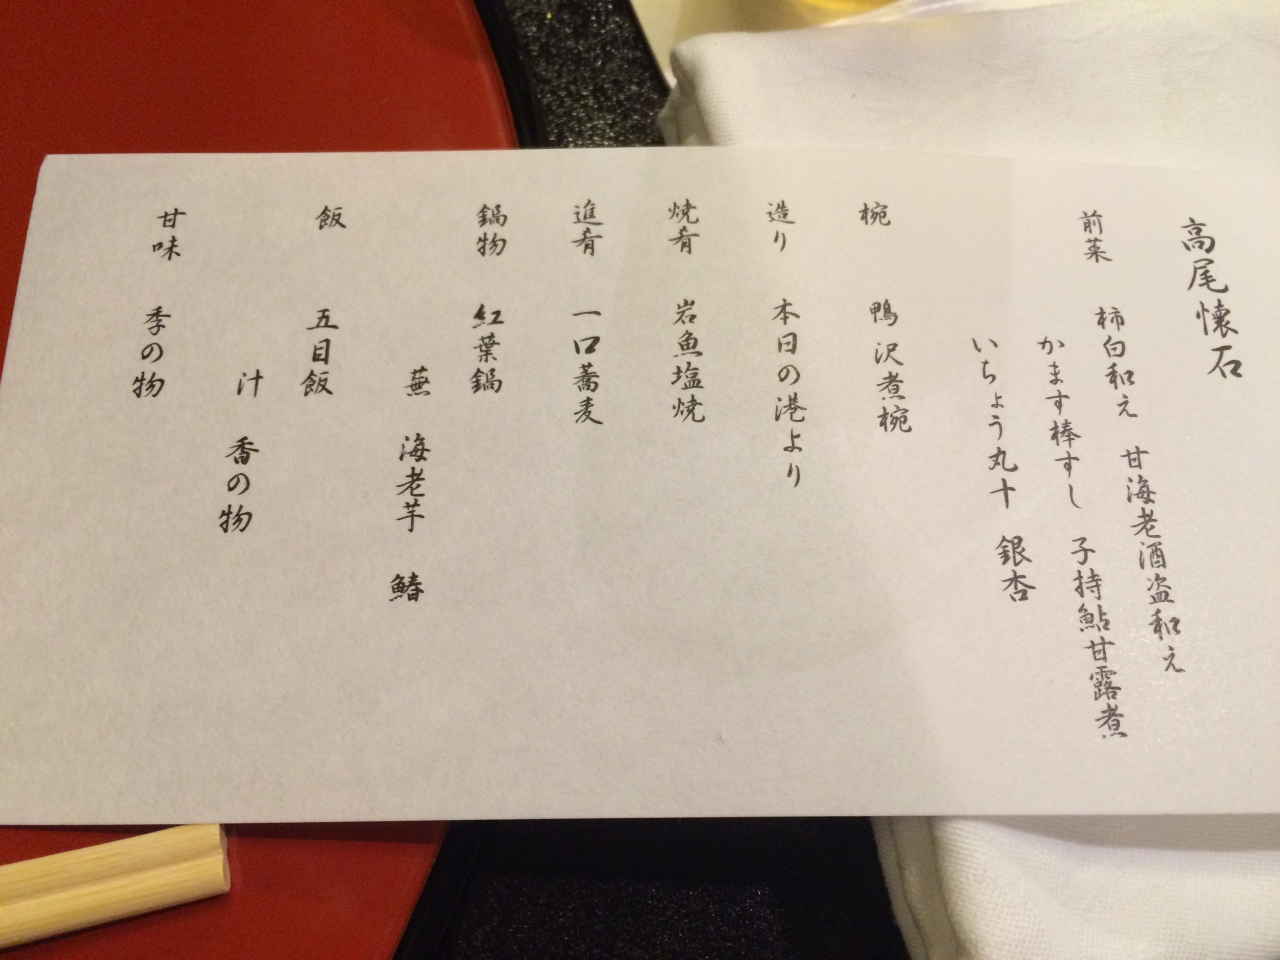 高尾懐石
前菜 柿白和え 甘海老酒盗和え
かます棒すし 子持鮎甘露煮
いちょう丸十 銀杏
椀 鴨沢煮椀
造り 本日の港より
焼肴 岩魚塩焼
進肴 一口蕎麦
鍋物 紅葉鍋
蕪 海老芋 鰆
飯 五目飯
汁 香の物
甘味 季の物